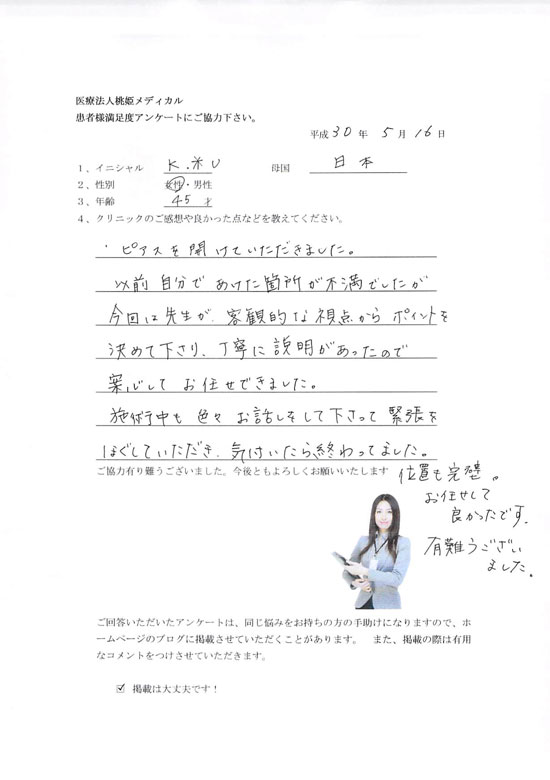 医療法人桃姫メディカル
患者様満足度アンケートにご協力下さい。
平成 30 年 5 月 16 日
1、イニシャル K.米U 母国 日本
2、性別 女性・男性
3、年齢 45 才
4、クリニックのご感想や良かった点などを教えてください。
・ピアスを開けていただきました。
以前自分であけた箇所が不満でしたが
今回は先生が、客観的な視点からポイントを
決めて下さり、丁寧に説明があったので
安心してお任せできました。
施術中も色々お話しをして下さって緊張を
ほぐしていただき、気付いたら終わってました。
ご協力有り難うございました。今後ともよろしくお願いいたします
位置も完璧。
お任せして
良かったです。
有難うござい
ました。
ご回答いただいたアンケートは、同じ悩みをお持ちの方の手助けになりますので、ホ
ームページのブログに掲載させていただくことがあります。 また、掲載の際は有用
なコメントをつけさせていただきます。
☑ 掲載は大丈夫です！